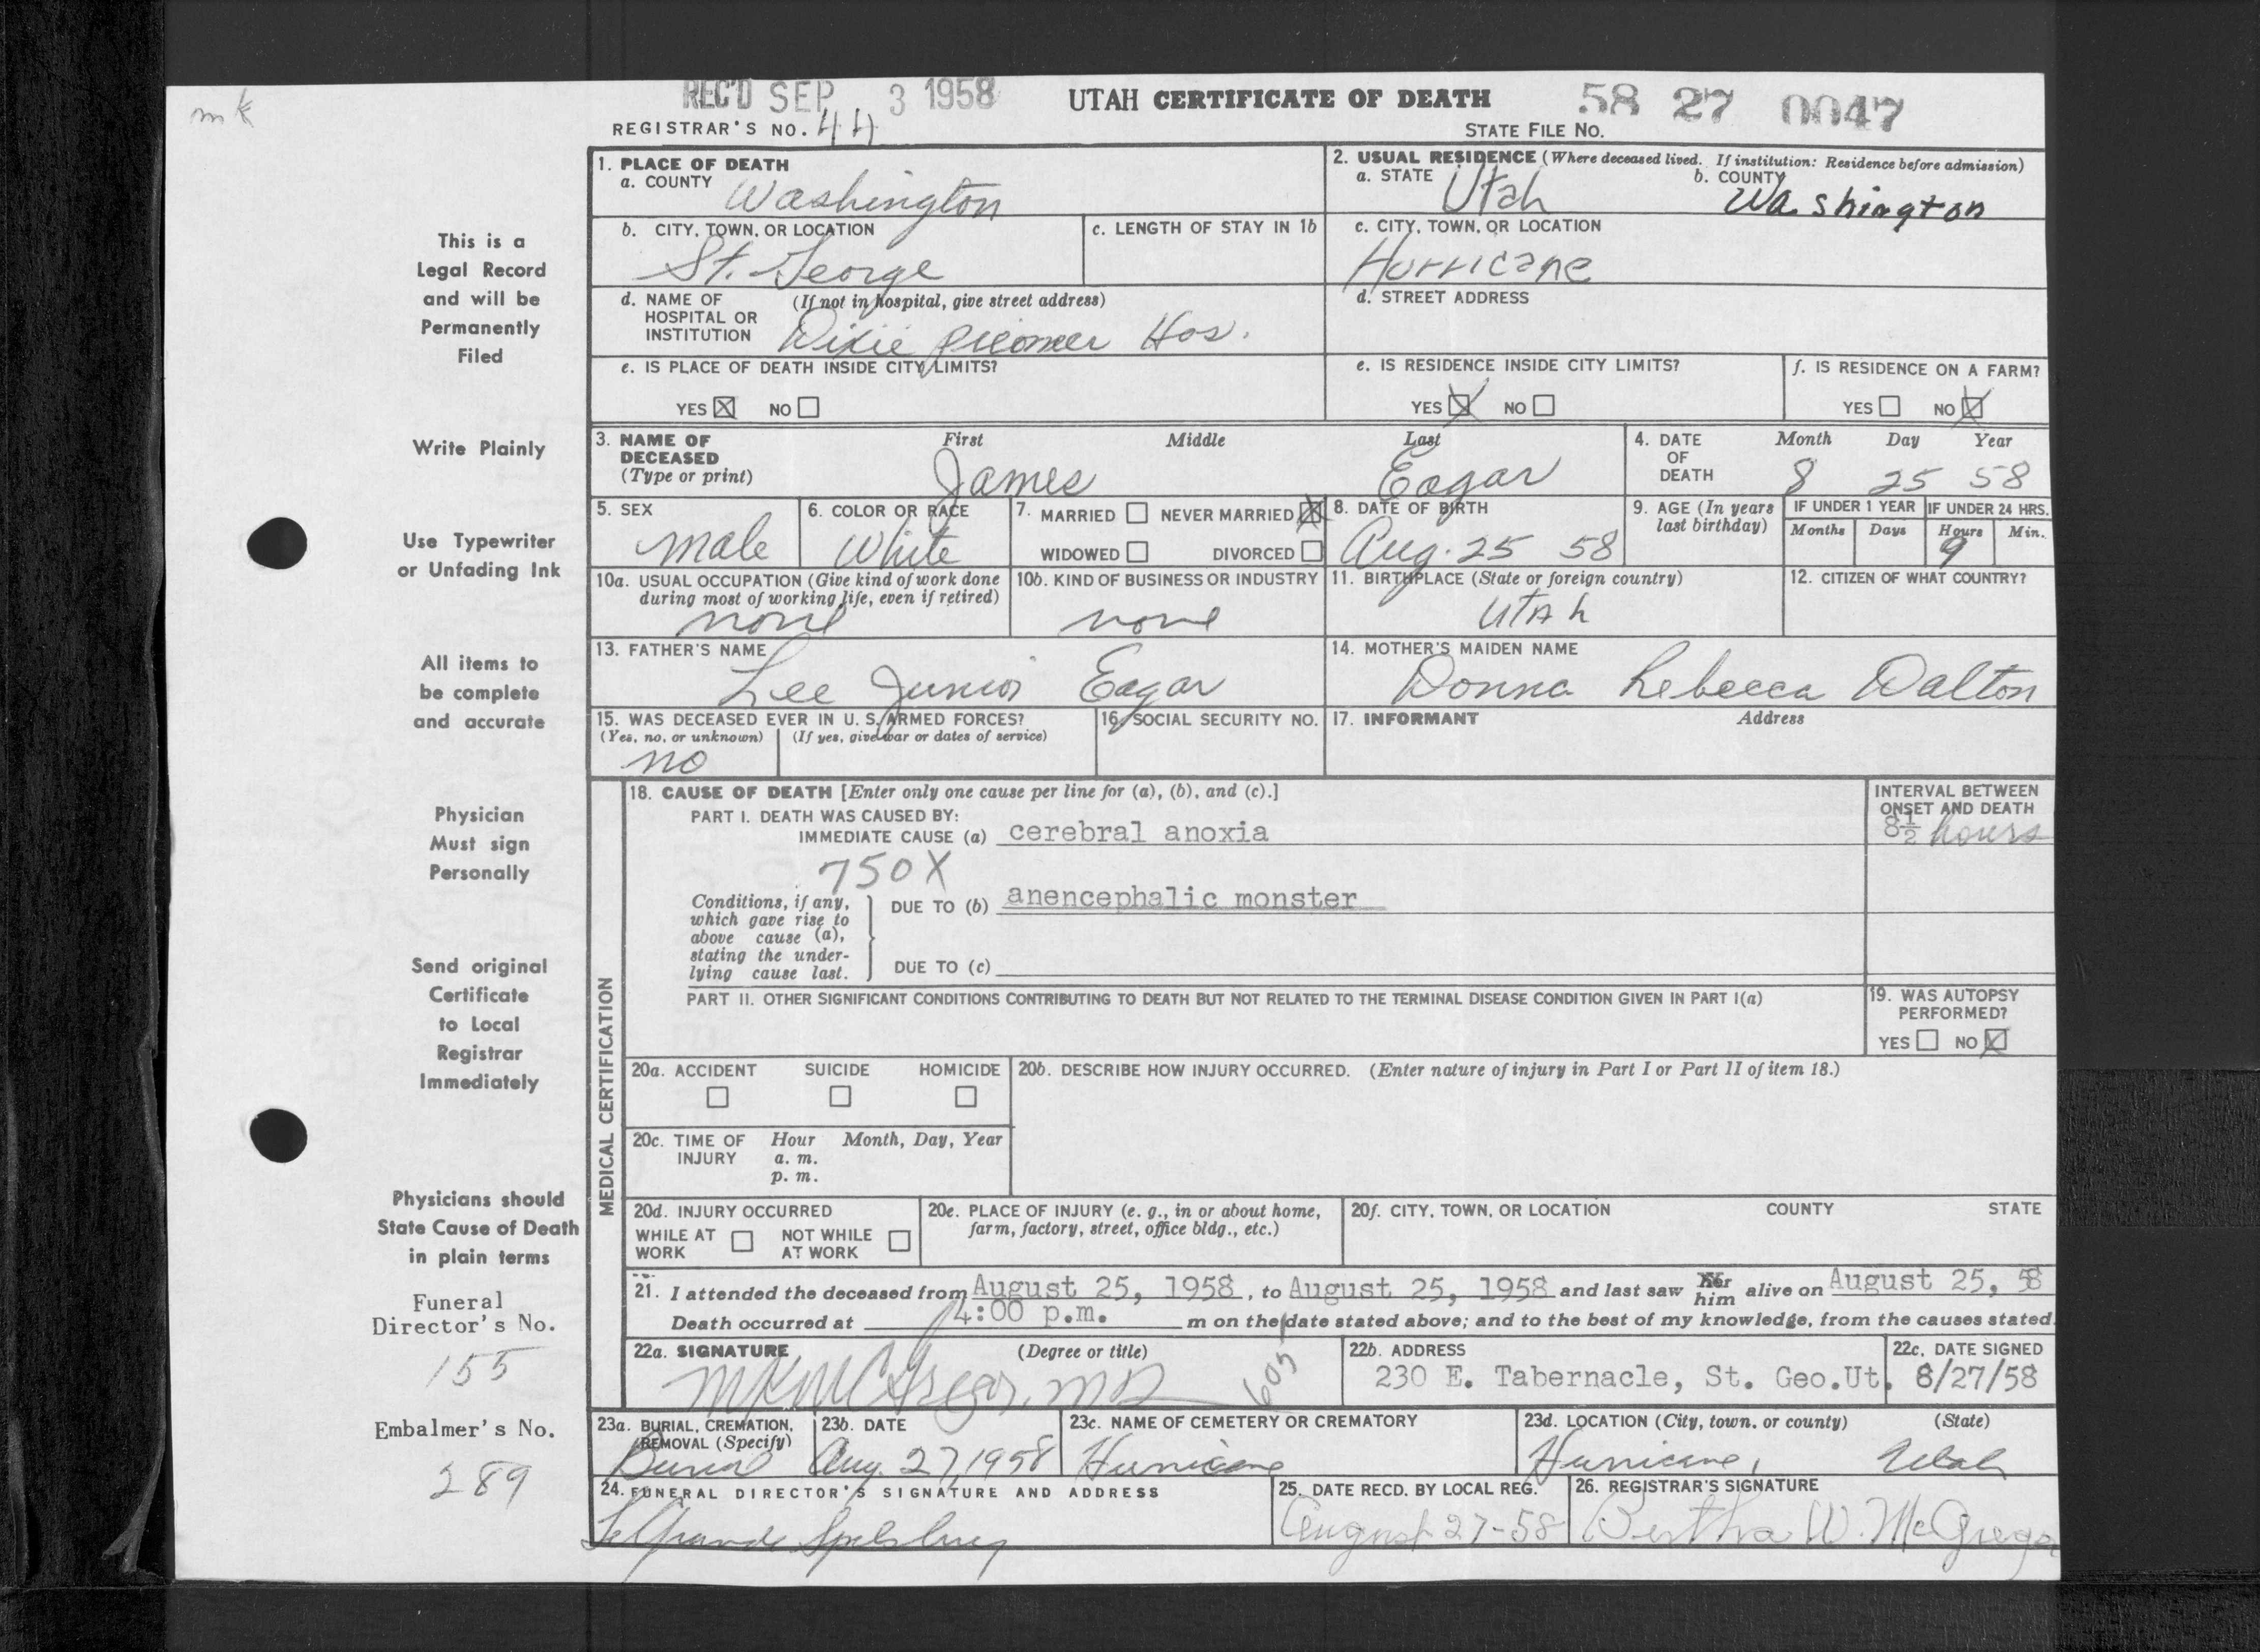 mk
REC'D SEP 3 1958
UTAH CERTIFICATE OF DEATH
58 27 0047
REGISTRAR'S NO. 44
STATE FILE NO.
This is a
Legal Record
and will be
Permanently
Filed
Write Plainly
Use Typewriter
or Unfading Ink
All items to
be complete
and accurate
Physician
Must sign
Personally
Send original
Certificate
to Local
Registrar
Immediately
Physicians should
State Cause of Death
in plain terms
Funeral
Director's No.
155
Embalmer's No.
289
1. PLACE OF DEATH
a. COUNTY Washington
2. USUAL RESIDENCE (Where deceased lived. If institution: Residence before admission)
a. STATE Utah b. COUNTY Washington
b. CITY, TOWN, OR LOCATION
St. George
c. LENGTH OF STAY IN 1b
c. CITY, TOWN, OR LOCATION
Hurricane
d. NAME OF HOSPITAL OR INSTITUTION (If not in hospital, give street address)
Dixie Pioneer Hos.
d. STREET ADDRESS
e. IS PLACE OF DEATH INSIDE CITY LIMITS?
YES X NO
e. IS RESIDENCE INSIDE CITY LIMITS?
YES X NO
f. IS RESIDENCE ON A FARM?
YES NO X
3. NAME OF DECEASED (Type or print)
First Middle Last
James Eagar
4. DATE OF DEATH
Month Day Year
8 25 58
5. SEX
male
6. COLOR OR RACE
White
7. MARRIED NEVER MARRIED X
WIDOWED DIVORCED
8. DATE OF BIRTH
Aug. 25 58
9. AGE (In years last birthday)
IF UNDER 1 YEAR IF UNDER 24 HRS.
Months Days Hours Min.
9
10a. USUAL OCCUPATION (Give kind of work done during most of working life, even if retired)
none
10b. KIND OF BUSINESS OR INDUSTRY
none
11. BIRTHPLACE (State or foreign country)
UTAh
12. CITIZEN OF WHAT COUNTRY?
13. FATHER'S NAME
Lee Junior Eagar
14. MOTHER'S MAIDEN NAME
Donna Rebecca Dalton
15. WAS DECEASED EVER IN U. S. ARMED FORCES?
(Yes, no, or unknown) (If yes, give war or dates of service)
no
16. SOCIAL SECURITY NO.
17. INFORMANT Address
MEDICAL CERTIFICATION
18. CAUSE OF DEATH [Enter only one cause per line for (a), (b), and (c).]
INTERVAL BETWEEN ONSET AND DEATH
PART I. DEATH WAS CAUSED BY:
IMMEDIATE CAUSE (a) cerebral anoxia
8½ hours
750X
Conditions, if any,
which gave rise to
above cause (a),
stating the under-
lying cause last.
DUE TO (b) anencephalic monster
DUE TO (c)
PART II. OTHER SIGNIFICANT CONDITIONS CONTRIBUTING TO DEATH BUT NOT RELATED TO THE TERMINAL DISEASE CONDITION GIVEN IN PART I(a)
19. WAS AUTOPSY PERFORMED?
YES NO X
20a. ACCIDENT SUICIDE HOMICIDE
20b. DESCRIBE HOW INJURY OCCURRED. (Enter nature of injury in Part I or Part II of item 18.)
20c. TIME OF INJURY Hour Month, Day, Year
a. m.
p. m.
20d. INJURY OCCURRED
WHILE AT WORK NOT WHILE AT WORK
20e. PLACE OF INJURY (e. g., in or about home, farm, factory, street, office bldg., etc.)
20f. CITY, TOWN, OR LOCATION COUNTY STATE
21. I attended the deceased from August 25, 1958, to August 25, 1958 and last saw her him alive on August 25, 58
Death occurred at 4:00 p.m. m on the date stated above; and to the best of my knowledge, from the causes stated.
22a. SIGNATURE (Degree or title)
MK McGregor, MD 605
22b. ADDRESS
230 E. Tabernacle, St. Geo.Ut.
22c. DATE SIGNED
8/27/58
23a. BURIAL, CREMATION, REMOVAL (Specify)
Burial
23b. DATE
Aug. 27, 1958
23c. NAME OF CEMETERY OR CREMATORY
Hurricane
23d. LOCATION (City, town, or county) (State)
Hurricane, Utah
24. FUNERAL DIRECTOR'S SIGNATURE AND ADDRESS
25. DATE RECD. BY LOCAL REG.
August 27-58
26. REGISTRAR'S SIGNATURE
Bertha W. McGregor